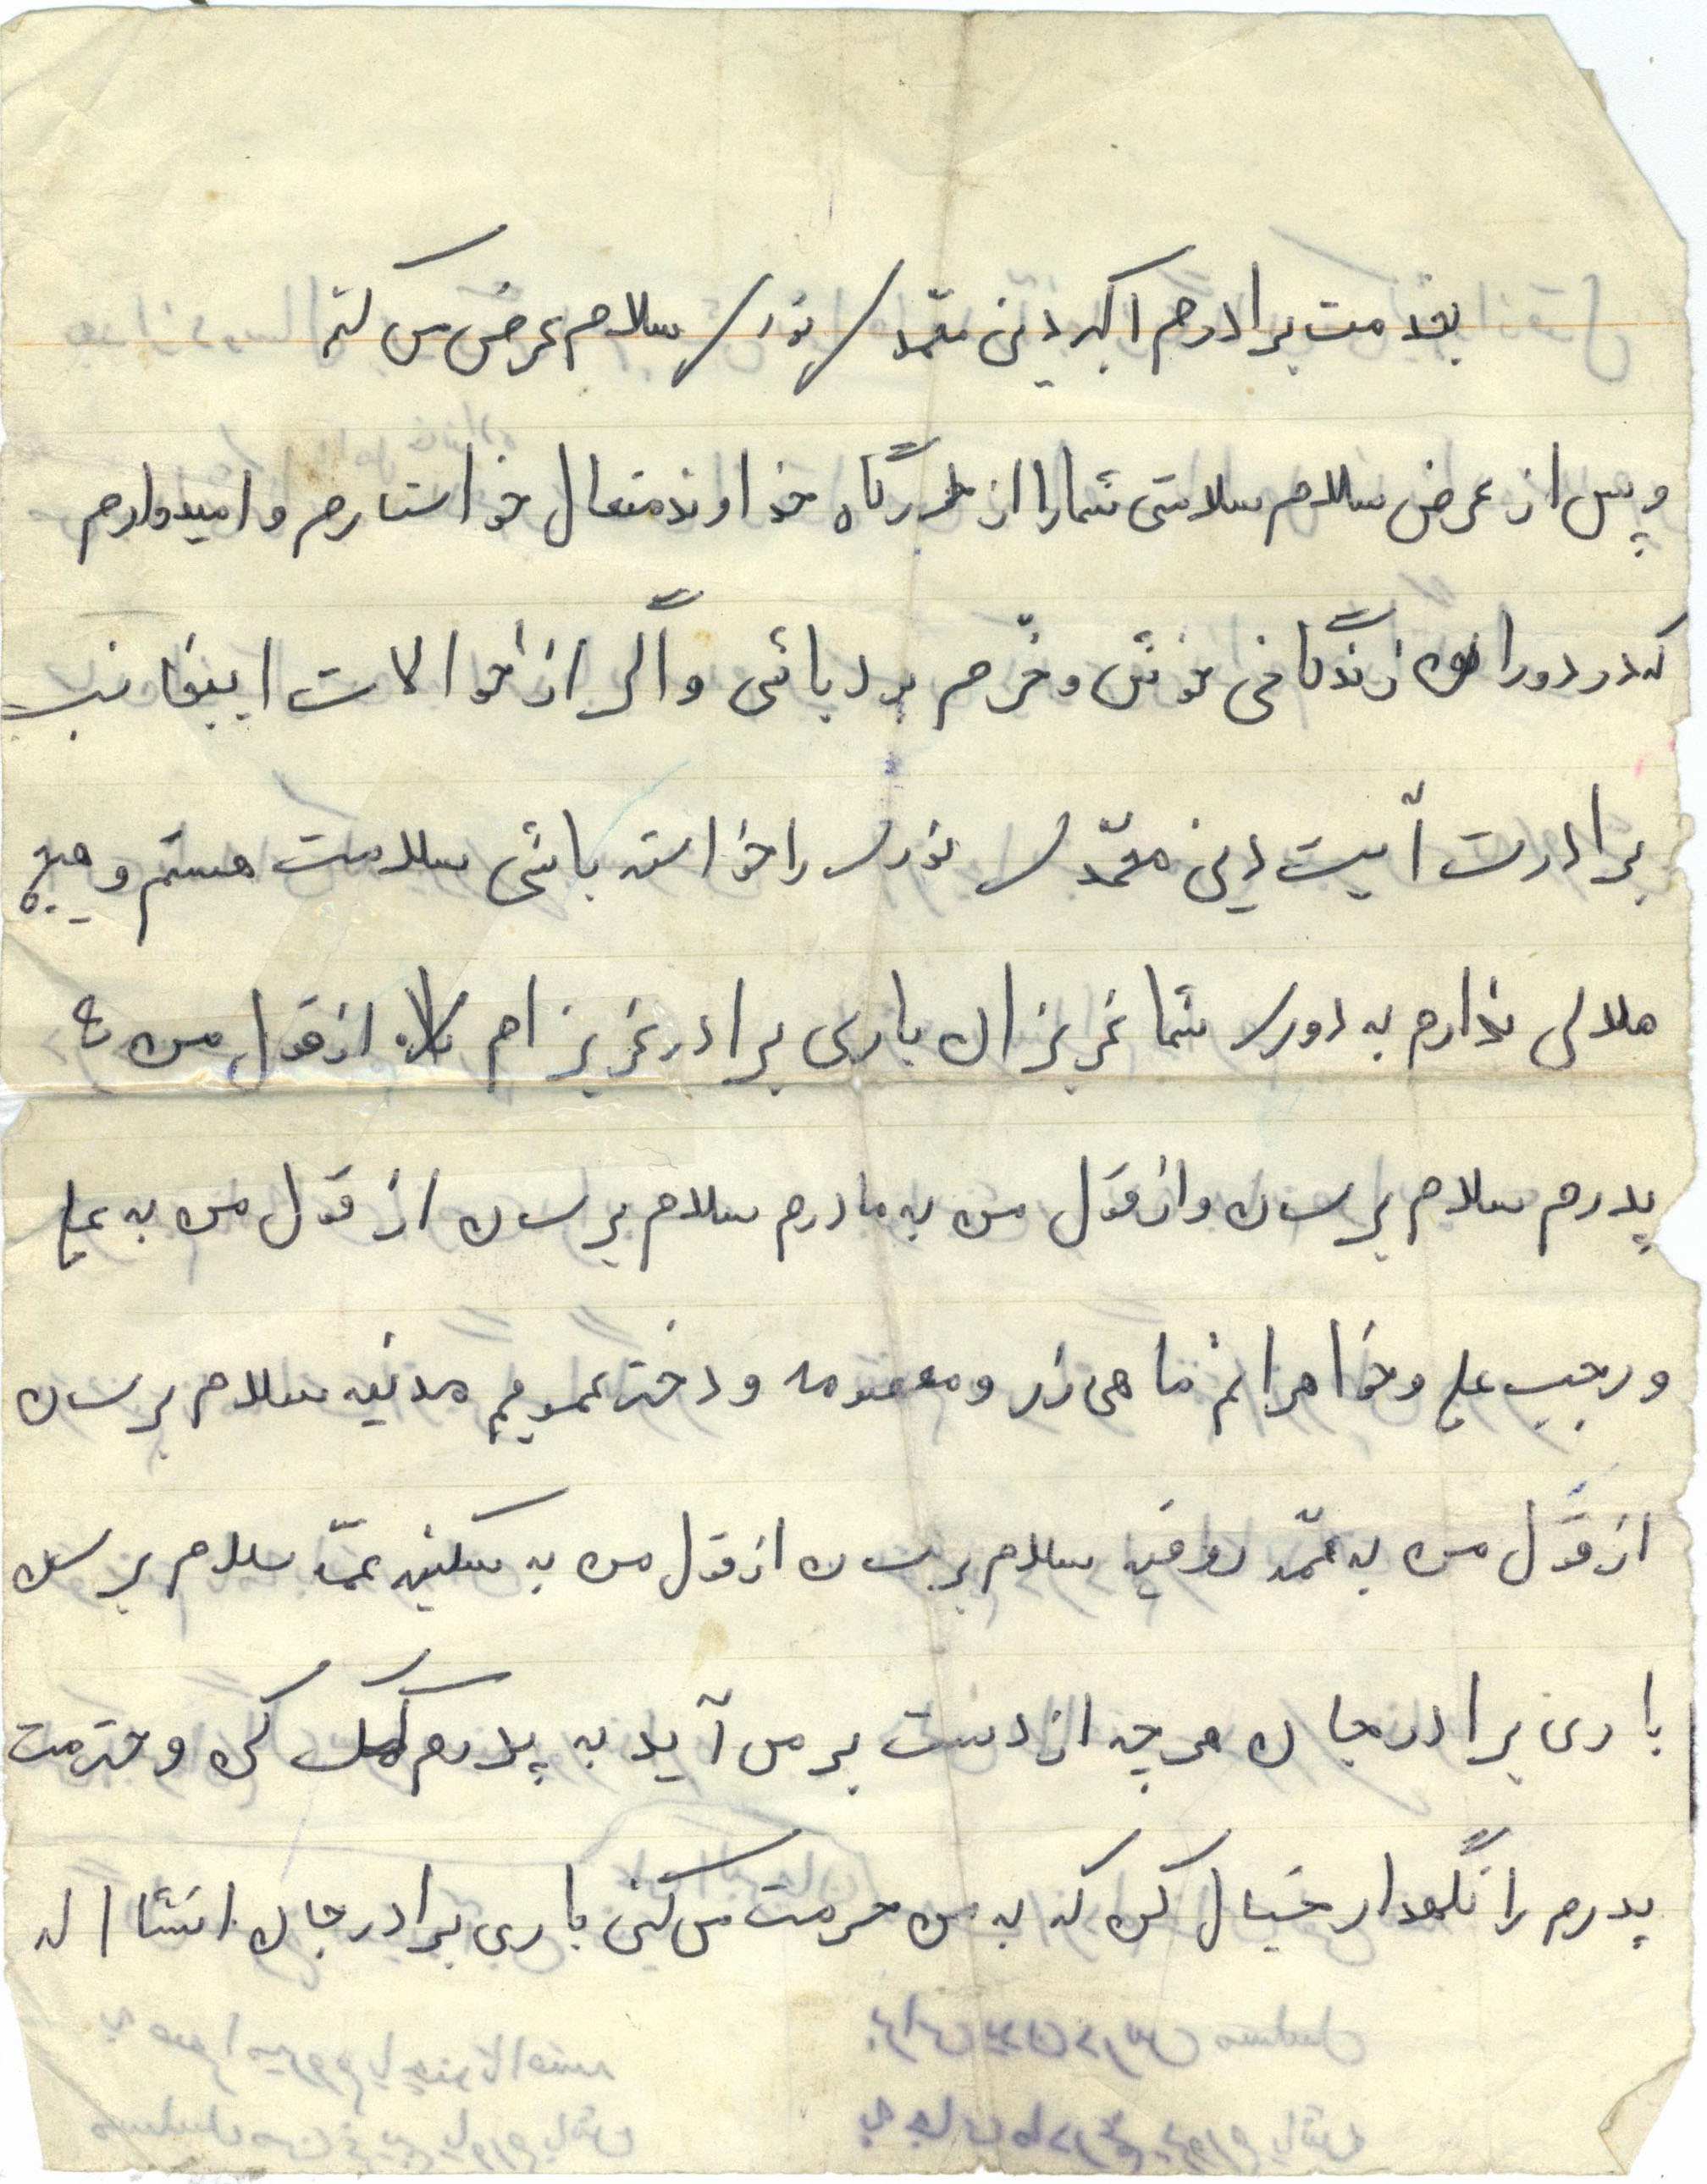 بخدمت برادرم اکبر دینی محمد / نور / سلام عرض می کنم
و پس از عرض سلام سلامتی شما را از درگاه خداوند متعال خواستارم و امیدوارم
که در دوران زندگانی خوش و خرّم بوده باشی و اگر از احوالات اینجانب
برادرت آیت دینی محمّد / نور / را خواسته باشی سلامت هستم و هیچ
ملالی ندارم به دوری شما عزیزان باری برادر عزیزام از قول من به
پدرم سلام برسان و از قول من به مادرم سلام برسان از قول من به علی
و رجب علی و خواهرانم ماهی زر و معصومه و دختر عمویم مدنیه سلام برسان
از قول من به عمّه رقیه سلام برسان از قول من به سکینه عمّه سلام برسان
باری برادر جان هرچه از دست بر می آید به پدرم کمک کن و حترمت
پدرم را نگهدار خیال کن که به من حرمت می کنی باری برادر جان انشا اله